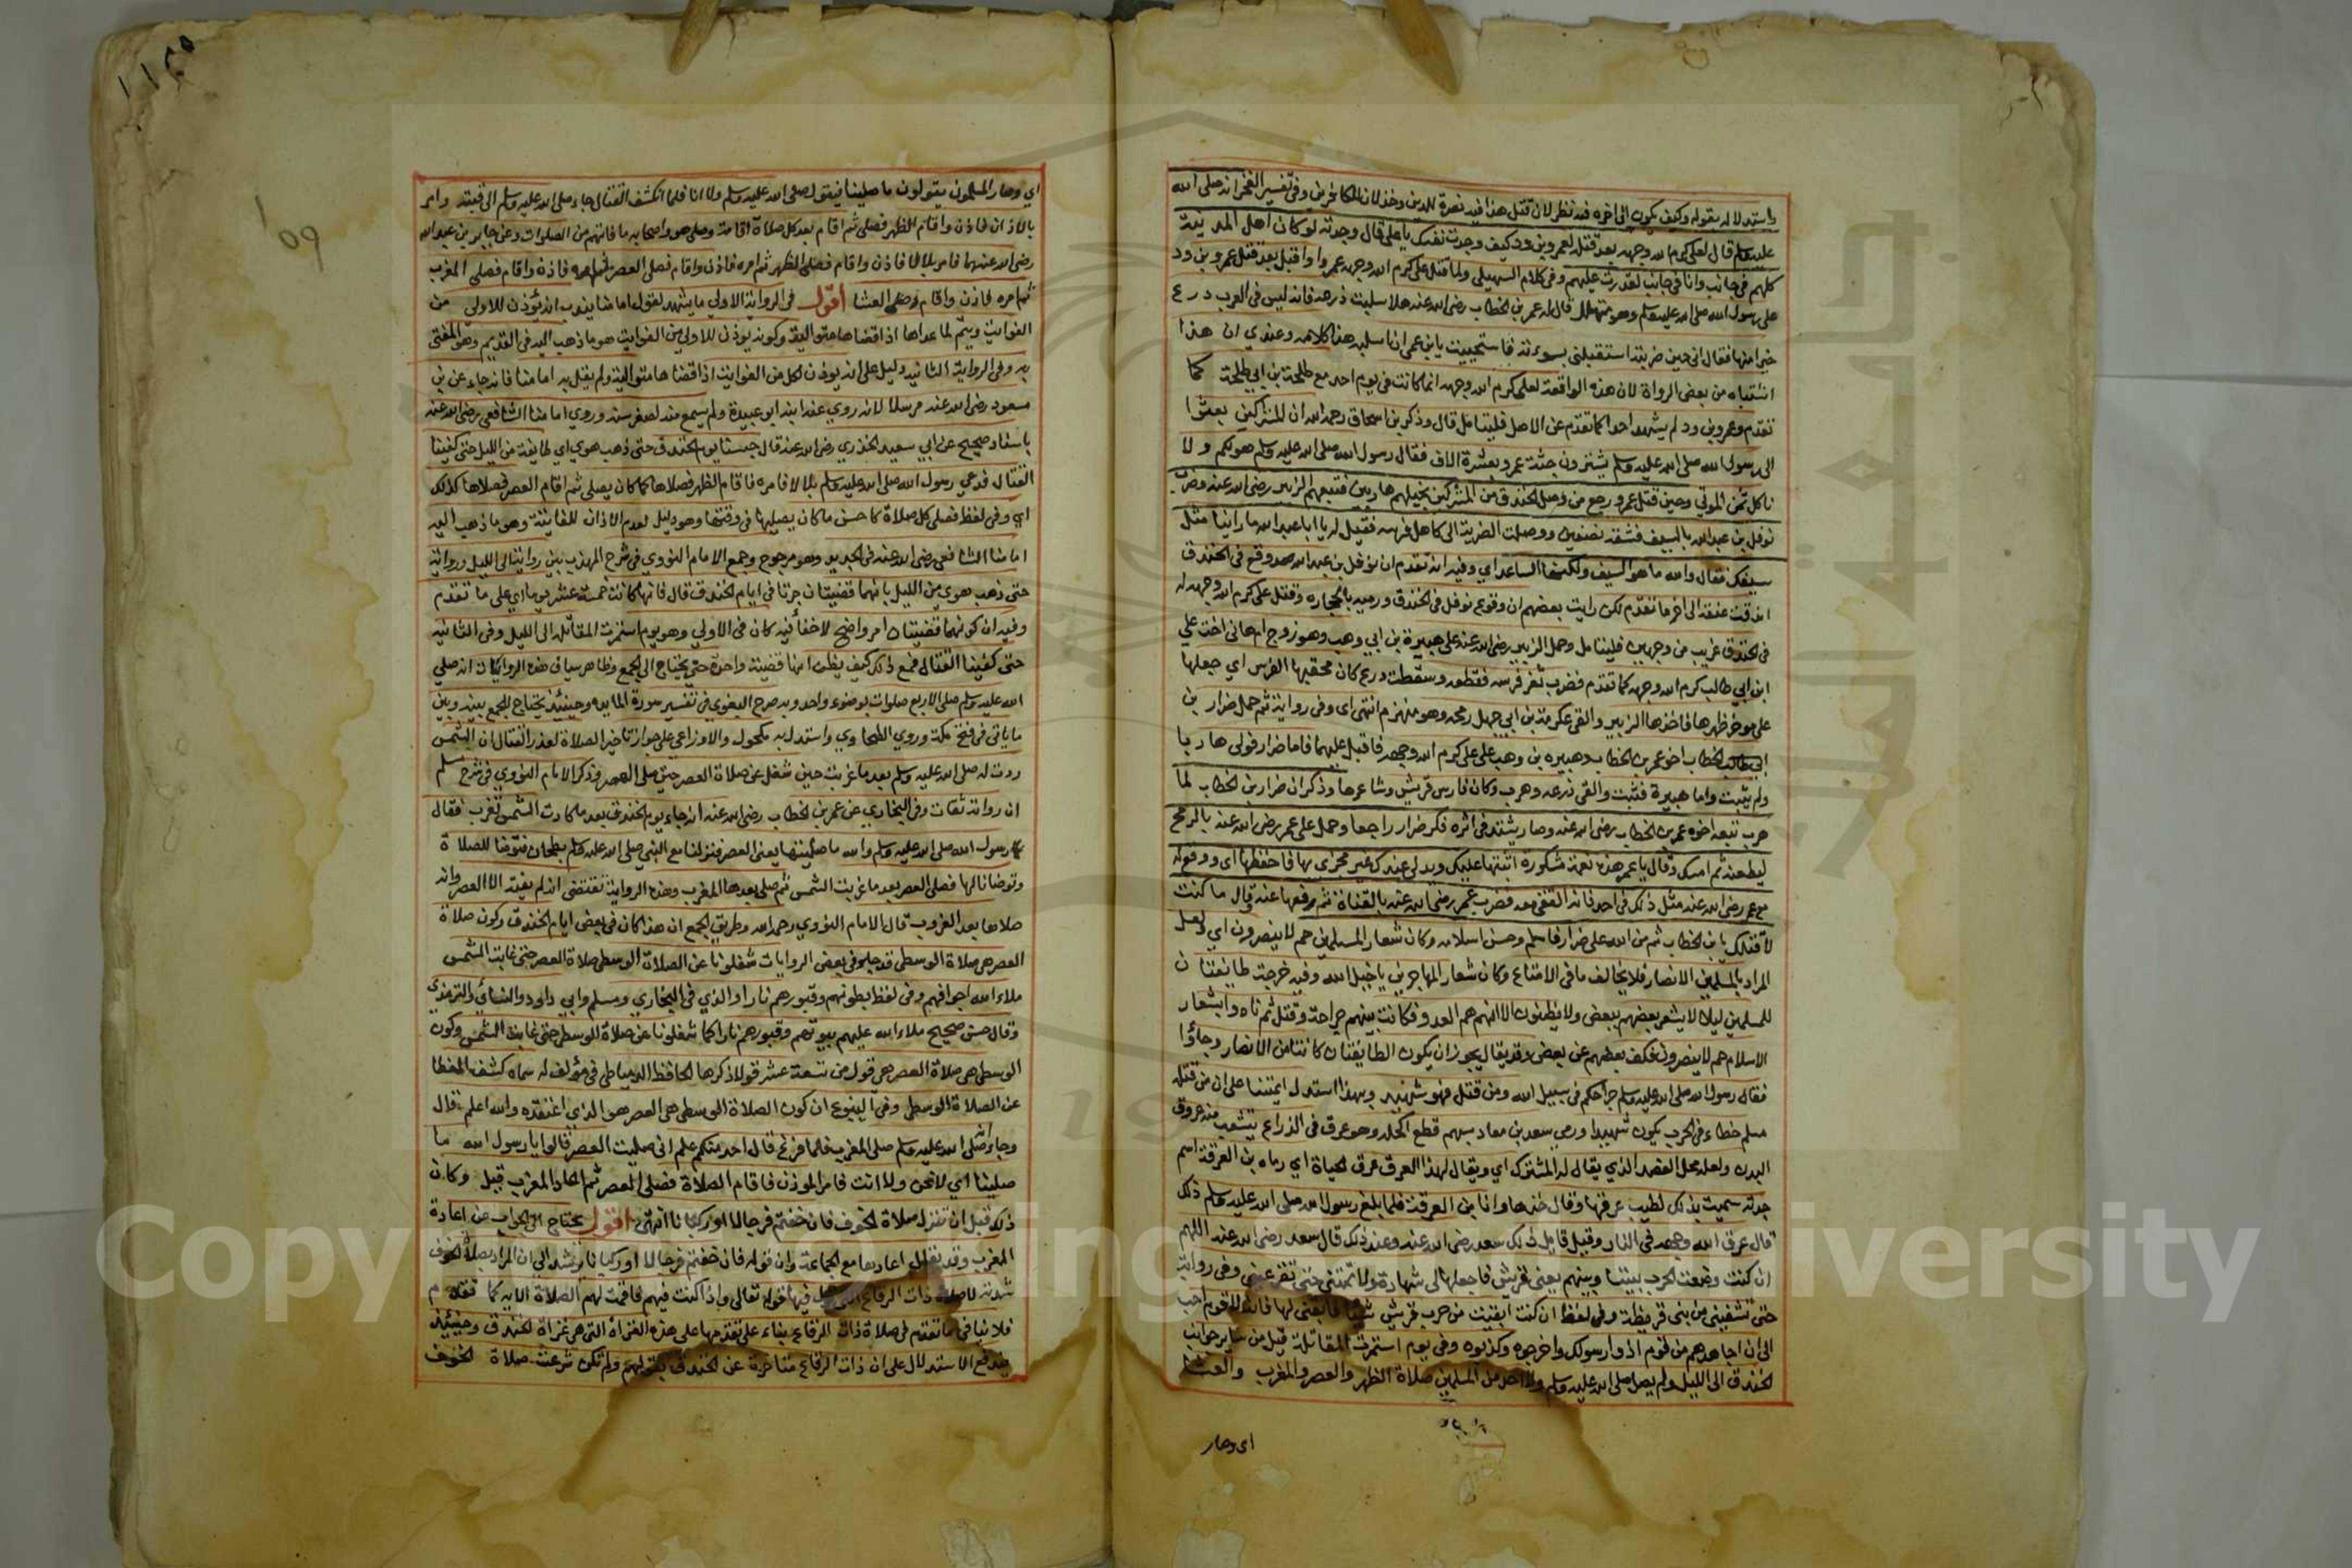 واستدلاله بقوله وكيف يكون الى اخره فيه نظر لان قتل هذا فيه نصرة للدين وخذلان للكافرين وفي تفسير الفخر انه صلى الله
عليه وسلم قال لعلي كرم الله وجهه بعد قتله لعمرو بن ود كيف وجدت نفسك يا علي قال وجدته لو كان اهل المدينة
كلهم في جانب وانا في جانب لقدرت عليهم وفي كلام السهيلي ولما قتل علي كرم الله وجهه عمروا اقبل بعد قتل عمرو بن ود
على رسول الله صلى الله عليه وسلم وهو متهلل قال له عمر بن الخطاب رضي الله عنه هلا سلبت ذرعه فانه ليس في العرب درع
خير منها فقال اني حين ضربته استقبلني بسوءته فاستحييت يا بن عمي ان اسلبه هذا كلامه وعندي ان هذا
اشتباه من بعض الرواة لان هذه الواقعة لعلي كرم الله وجهه انما كانت في يوم احد مع طلحة بن ابي طلحة كما
تقدم وعمرو بن ود لم يشهد احدا كما تقدم عن الاصل فليتامل قال وذكر بن اسحاق رحمه الله ان المشركين بعثوا
الى رسول الله صلى الله عليه وسلم يشترون جثة عمرو بعشرة الاف فقال رسول الله صلى الله عليه وسلم هو لكم ولا
ناكل ثمن الموتي وحين قتل عمرو رجع من وصل الخندق من المشركين بخيلهم هاربين فتبعهم الزبير رضي الله عنه وضرب
نوفل بن عبد الله بالسيف فشقه نصفين ووصلت الضربة الى كاهل فرسه فقيل له يا ابا عبد الله ما راينا مثل
سيفك فقال والله ما هو السيف ولكنها الساعد اي وفيه انه تقدم ان نوفل بن عبد الله وقع في الخندق
اندقت عنقه الى اخر ما تقدم لكن رايت بعضهم ان وقوع نوفل في الخندق ورميه بالحجاره وقتل علي كرم الله وجهه له
في الخندق غريب من وجهين فليتامل وحمل الزبير رضي الله عنه على هبيرة بن ابي وهب وهو زوج ام هاني اخت علي
ابن ابي طالب كرم الله وجهه كما تقدم فضرب ثغر فرسه فقطعه وسقطت درع كان محقبها الفرس اي جعلها
على موخر ظهرها فاخذها الزبير والقى عكرمة بن ابي جهل رمحه وهو منهزم انتهى اي وفي رواية ثم حمل ضرار بن
الخطاب اخو عمر بن الخطاب وهبيره بن وهب على علي كرم الله وجهه فاقبل عليهما فاما ضرار فولى هاربا
ولم يثبت واما هبيرة فثبت والقى ذرعه وهرب وكان فارس قريش وشاعرها وذكر ان ضرار بن الخطاب لما
هرب تبعه اخوه عمر بن الخطاب رضي الله عنه وصار يشتد في اثره فكر ضرار راجعا وحمل على عمر رضي الله عنه بالرمح
ليطعنه ثم امسك وقال يا عمر هذه نعمة مشكورة اثبتها عليك ويد لي عندك غير مجزي بها فاحفظها اي ووقع له
مع عمر رضي الله عنه مثل ذلك في احد فانه التقى معه فضرب عمر رضي الله عنه بالقناة ثم رفعها عنه وقال ما كنت
لاقتلك يا بن الخطاب ثم من الله على ضرار فاسلم وحسن اسلامه وكان شعار المسلمين حم لا ينصرون اي ولعل
المراد بالمسلمين الانصار فلا يخالف ما في الامتاع وكان شعار المهاجرين يا خيل الله وفيه خرجت طايفتان
للمسلمين ليلا لا يشعر بعضهم ببعض ولا يظنون الا انهم هم العدو فكانت بينهم جراحة وقتل ثم نادوا بشعار
الاسلام حم لا ينصرون فكف بعضهم عن بعض وقد يقال يجوز ان يكون الطايفتان كانتا من الانصار وجاؤا
فقال رسول الله صلى الله عليه وسلم جراحكم في سبيل الله ومن قتل فهو شهيد وبهذا استدل ايمتنا على ان من قتله
مسلم خطاء في الحرب يكون شهيدا ورمي سعد بن معاد بسهم قطع اكحله وهو عرق في الذراع يتشعب منه عروق
البدن ولعله محل الفصد الذي يقال له المشترك اي ويقال لهذا العرق عرق الحياة اي رماه بن العرقة اسم
جدته سميت بذلك لطيب عرقها وقال خذها وانا بن العرقة فلما بلغ رسول الله صلى الله عليه وسلم ذلك
قال عرق الله وجهه في النار وقيل قايل ذلك سعد رضي الله عنه وعند ذلك قال سعد رضي الله عنه اللهم
ان كنت وضعت الحرب بيننا وبينهم يعني قريش فاجعلها لي شهادة ولا تمتني حتى تقر عيني وفي رواية
حتى تشفيني من بني قريظة وفي لفظ ان كنت ابقيت من حرب قريش شيئا فابقني لها فانه لا قوم احب
الى ان اجاهدهم من قوم اذوا رسولك واخرجوه وكذبوه وفي يوم استمرت المقاتلة قيل من سايرجوانب
الخندق الى الليل ولم يصل صلى الله عليه وسلم ولا احد من المسلمين صلاة الظهر والعصر والمغرب والعشا
اى وصار
اي وصار المسلمون يقولون ما صلينا فيقول صلى الله عليه وسلم ولا انا فلما انكشف القتال جاء صلى الله عليه وسلم الى قبته وامر
بلالا فاذن واقام الظهر فصلى ثم اقام بعد كل صلاة اقامة وصلى هو واصحابه ما فاتهم من الصلوات وعن جابر بن عبد الله
رضي الله عنهما فامر بلالا فاذن واقام فصلى الظهر ثم امره فاذن واقام فصلى العصر ثم امره فاذن واقام فصلى المغرب
ثم امره فاذن واقام فصلى العشا اقول في الرواية الاولي ما يشهد لقول امامنا يندب ان يؤذن للاولي من
الفوايت ويتم لما عداها اذا قضاها متوالية وكونه يوذن للاولي من الفوايت هو ما ذهب اليه في القديم وهو المفتى
به وفي الرواية الثانيه دليل على انه يوذن لكل من الفوايت اذا قضاها متوالية ولم يقل به امامنا فانه جاء عن بن
مسعود رضي الله عنه مرسلا لانه روي عنه ابنه ابو عبيدة ولم يسمع منه لصغر سنه وروي امامنا الشافعي رضي الله عنه
باسناد صحيح عن ابي سعيد الخذري رضي الله عنه قال حبسنا يوم الخندق حتى ذهب هوي اي طايفة من الليل حتى كفينا
القتال فدعي رسول الله صلى الله عليه وسلم بلالا فامره فاقام الظهر فصلاها كما كان يصلي ثم اقام العصر فصلاها كذلك
اي وفي لفظ فصلى كل صلاة كاحسن ما كان يصليها في وقتها وهو دليل لعدم الاذان للفايتة وهو ما ذهب اليه
امامنا الشافعي رضي الله عنه في الجديد وهو مرجوح وجمع الامام النووي في شرح المهذب بين روايتا الى الليل ورواية
حتى ذهب هوي من الليل بانهما قضيتان جرتا في ايام الخندق قال فانها كانت خمسة عشر يوما اي على ما تقدم
وفيه ان كونهما قضيتان امر واضح لا خفأ فيه كان في الاولي وهو يوم استمرت المقاتلة الى الليل وفي الثانيه
حتى كفينا القتال فمع ذلك كيف يظن انها قضية واحدة حتى يحتاج الى الجمع وظاهر سياق هذه الروايات انه صلى
الله عليه وسلم صلى الاربع صلوات بوضوء واحد وبه صرح البغوي في تفسير سورة المايده وحينئذ يحتاج للجمع بينه وبين
ما ياتي في فتح مكة وروي الطحاوي واستدل به مكحول والاوزاعي على جواز تاخير الصلاة لعذر القتال ان الشمس
ردت له صلى الله عليه وسلم بعد ما غربت حين شغل عن صلاة العصر حتى صلى العصر وذكر الامام النووي في شرح مسلم
ان رواته ثقات وفي البخاري عن عمر بن الخطاب رضي الله عنه انه جاء يوم الخندق بعد ما كادت الشمس تغرب فقال
يا رسول الله صلى الله عليه وسلم والله ما صليتها يعني العصر فنزلنا مع النبي صلى الله عليه وسلم بطحان فتوضا للصلاة
وتوضانا لها فصلى العصر بعد ما غربت الشمس ثم صلى بعدها المغرب وهذه الرواية تقتضي انه لم يفته الا العصر وانه
صلاها بعد الغروب قال الامام النووي رحمه الله وطريق الجمع ان هذا كان في بعض ايام الخندق وكون صلاة
العصر هي صلاة الوسطى قد جاء في بعض الروايات شغلونا عن الصلاة الوسطى صلاة العصر حتى غابت الشمس
ملاء الله اجوافهم وفي لفظ بطونهم وقبورهم نارا والذي في البخاري ومسلم وابي داود والنسائي والترمذي
وقال حسن صحيح ملاء الله عليهم بيوتهم وقبورهم نارا كما شغلونا عن صلاة الوسطى حتى غابت الشمس وكون
الوسطى هي صلاة العصر هي قول من تسعة عشر قولا ذكرها الحافظ الدمياطي في مؤلف له سماه كشف المغطا
عن الصلاة الوسطى وفي الينبوع ان كون الصلاة الوسطى هي العصر هو الذي اعتقده والله اعلم قال
وجاء انه صلى الله عليه وسلم صلى المغرب فلما فرغ قال احد منكم علم اني صليت العصر قالوا يا رسول الله ما
صلينا اي لا نحن ولا انت فامر الموذن فاقام الصلاة فصلى العصر ثم اعاد المغرب قيل وكان
ذلك قبل ان تنزل صلاة الخوف فان خفتم فرجالا او ركبانا انتهى اقول يحتاج الى الجواب عن اعادة
المغرب وقد يقال اعادها مع الجماعة وان قوله فان خفتم فرجالا او ركبانا يرشد الى ان المراد بصلاة الخوف
شدته لا صلاة ذات الرقاع التي نزل فيها قوله تعالى واذا كنت فيهم فاقمت لهم الصلاة الايه كما تقدم
فلا ينافي ما تقدم في صلاة ذات الرقاع بناء على تقدمها على هذه الغزاة التي هي غزاة الخندق وحينئذ
يندفع الاستدلال على ان ذات الرقاع متاخرة عن الخندق بقولهم ولم تكن شرعت صلاة الخوف
Copy King Saud University